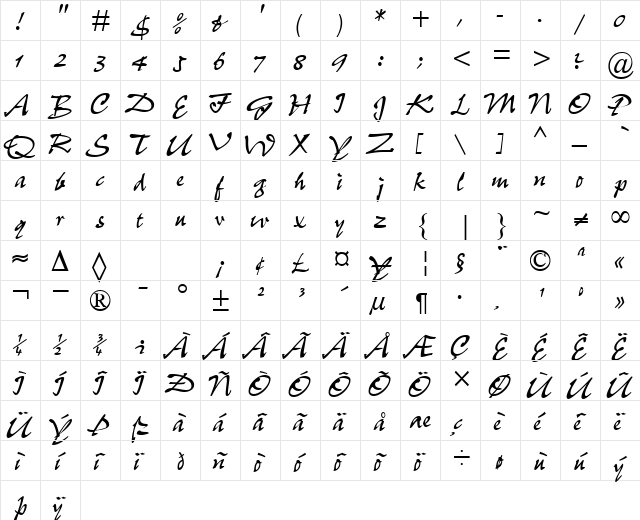 ! " # $ % & ' ( ) * + , - . / 0
1 2 3 4 5 6 7 8 9 : ; < = > ? @
A B C D E F G H I J K L M N O P
Q R S T U V W X Y Z [ \ ] ^ _ `
a b c d e f g h i j k l m n o p
q r s t u v w x y z { | } ~ ≠ ∞
≈ ∆ ◊ ¡ ¢ £ ¤ ¥ ¦ § ¨ © ª «
¬ ― ® ¯ ° ± ² ³ ´ µ ¶ · ¸ ¹ º »
¼ ½ ¾ ¿ À Á Â Ã Ä Å Æ Ç È É Ê Ë
Ì Í Î Ï Ð Ñ Ò Ó Ô Õ Ö × Ø Ù Ú Û
Ü Ý Þ ß à á â ã ä å æ ç è é ê ë
ì í î ï ð ñ ò ó ô õ ö ÷ ø ù ú ý
þ ÿ